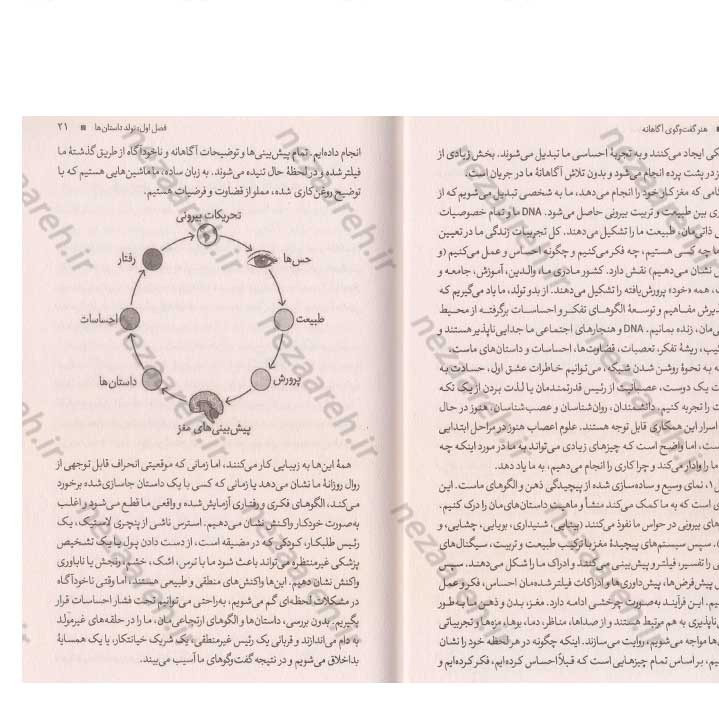 هنر گفت‌وگوی آگاهانه
کی ایجاد می‌کنند و به تجربهٔ احساسی ما تبدیل می‌شوند. بخش زیادی از
در پشت پرده انجام می‌شود و بدون تلاش آگاهانهٔ ما در جریان است.
که مغز کار خود را انجام می‌دهد، ما به شخصی تبدیل می‌شویم که از
بین طبیعت و تربیت بیرونی حاصل می‌شود. DNA ما و تمام خصوصیات
ذاتی‌مان، طبیعت ما را تشکیل می‌دهند. کل تجربیات زندگی ما در تعیین
چه کسی هستیم، چه فکر می‌کنیم و چگونه احساس و عمل می‌کنیم (و
نشان می‌دهیم) نقش دارد. کشور مادری ما، والدین، آموزش، جامعه و
همه «خود» پرورش‌یافته را تشکیل می‌دهند. از بدو تولد، ما یاد می‌گیریم که
مفاهیم و توسعهٔ الگوهای تفکر و احساسات برگرفته از محیط
زنده بمانیم. DNA و هنجارهای اجتماعی ما جدایی‌ناپذیر هستند و
ریشهٔ تفکر، تعصبات، قضاوت‌ها، احساسات و داستان‌های ماست.
به نحوهٔ روشن شدن شبکه، می‌توانیم خاطرات عشق اول، حسادت به
یک دوست، عصبانیت از رئیس قدرتمندمان یا لذت بردن از یک تکه
را تجربه کنیم. دانشمندان، روان‌شناسان و عصب‌شناسان، هنوز در حال
اسرار این همکاری قابل توجه هستند. علوم اعصاب هنوز در مراحل ابتدایی
اما واضح است که چیزهای زیادی می‌تواند به ما در مورد اینکه چه
ما را وادار می‌کند و چرا کاری را انجام می‌دهیم، به ما یاد دهد.
۱، نمای وسیع و ساده‌سازی شده از پیچیدگی ذهن و الگوهای ماست. این
است که به ما کمک می‌کند منشأ و ماهیت داستان‌های مان را درک کنیم.
بیرونی در حواس ما نفوذ می‌کنند (بینایی، شنیداری، بویایی، چشایی، و
سپس سیستم‌های پیچیدهٔ مغز با ترکیب طبیعت و تربیت، سیگنال‌های
را تفسیر، فیلتر و پیش‌بینی می‌کنند و ادراک ما را شکل می‌دهند. سپس
پیش‌فرض‌ها، پیش‌داوری‌ها و ادراکات فیلتر شده‌مان احساس، فکر و عمل
این فرآیند به‌صورت چرخشی ادامه دارد. مغز، بدن و ذهن ما به طور
به هم مرتبط هستند و از صداها، مناظر، دما، بوها، مزه‌ها و تجربیاتی
مواجه می‌شویم، روایت می‌سازند. اینکه چگونه در هر لحظه خود را نشان
بر اساس تمام چیزهایی است که قبلاً احساس کرده‌ایم، فکر کرده‌ایم و
فصل اول: تولد داستان‌ها ■ ۲۱
انجام داده‌ایم. تمام پیش‌بینی‌ها و توضیحات آگاهانه و ناخودآگاه از طریق گذشتهٔ ما
فیلتر شده و در لحظهٔ حال تنیده می‌شوند. به زبان ساده، ما ماشین‌هایی هستیم که با
توضیح روغن‌کاری شده، مملو از قضاوت و فرضیات هستیم.
تحریکات بیرونی
حس‌ها
طبیعت
پرورش
پیش‌بینی‌های مغز
داستان‌ها
احساسات
رفتار
همهٔ این‌ها به زیبایی کار می‌کنند، اما زمانی که موقعیتی انحراف قابل توجهی از
روال روزانهٔ ما نشان می‌دهد یا زمانی که کسی با یک داستان جاسازی‌شده برخورد
می‌کند، الگوهای فکری و رفتاری آزمایش‌شده و واقعی ما قطع می‌شود و اغلب
به‌صورت خودکار واکنش نشان می‌دهیم. استرس ناشی از پنچری لاستیک، یک
رئیس طلبکار، کودکی که در مضیقه است، از دست دادن پول یا یک تشخیص
پزشکی غیرمنتظره می‌تواند باعث شود ما با ترس، اشک، خشم، رنجش یا ناباوری
واکنش نشان دهیم. این‌ها واکنش‌های منطقی و طبیعی هستند، اما وقتی ناخودآگاه
در مشکلات لحظه‌ای گم می‌شویم، به‌راحتی می‌توانیم تحت فشار احساسات قرار
بگیریم. بدون بررسی، داستان‌ها و الگوهای ارتجاعی‌مان، ما را در حلقه‌های غیرمولد
به دام می‌اندازند و قربانی یک رئیس غیرمنطقی، یک شریک خیانتکار، یا یک همسایهٔ
بداخلاق می‌شویم و در نتیجه گفت‌وگوهای ما آسیب می‌بیند.
nezaareh.ir